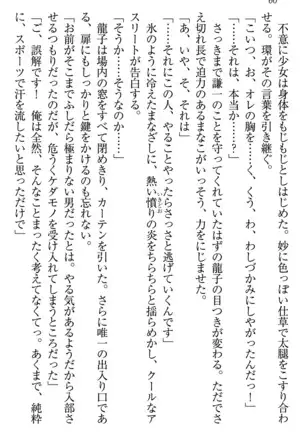 60
不意に少女は身体をもじもじとしはじめた。妙に色っぽい仕草で太腿をこすり合わ
せる。環がその言葉を引き継ぐ。
「こいつ、お、オレの胸を……むしろ、くう、わ、わしづかみにしやがったんだっ！」
「……それは、本当か……？」
「あ、いや、そ、それは」
「……それにこの人、やることやったらさっさと逃げていくんです……」
さっきまで謙一のことを守ってくれていたはずの龍子の目つきが変わる。ただでさ
え切れ長で迫力のあるまなこがいっそう、力をにじませた。
「そうか……そうなのか……」
氷のように冷えたまなざしに、熱い憤りの炎をちらちらと揺らめかし、クールなア
スリートが告白する。
龍子は場内の窓をすべて閉めきり、カーテンを引いた。さらに唯一の出入り口であ
る、扉にもしっかりと鍵をかけるのも忘れない。
「お前がそこまでふしだら極まりない男だったとは。やる気があるようだから入部さ
せるつもりだったのだが、危うくケダモノを受け入れてしまうところだった」
「ご、誤解です！　俺は全然、そんなことまったく考えてなくてっ。あくまで、純粋
に、スポーツで汗を流したいと思っただけで」